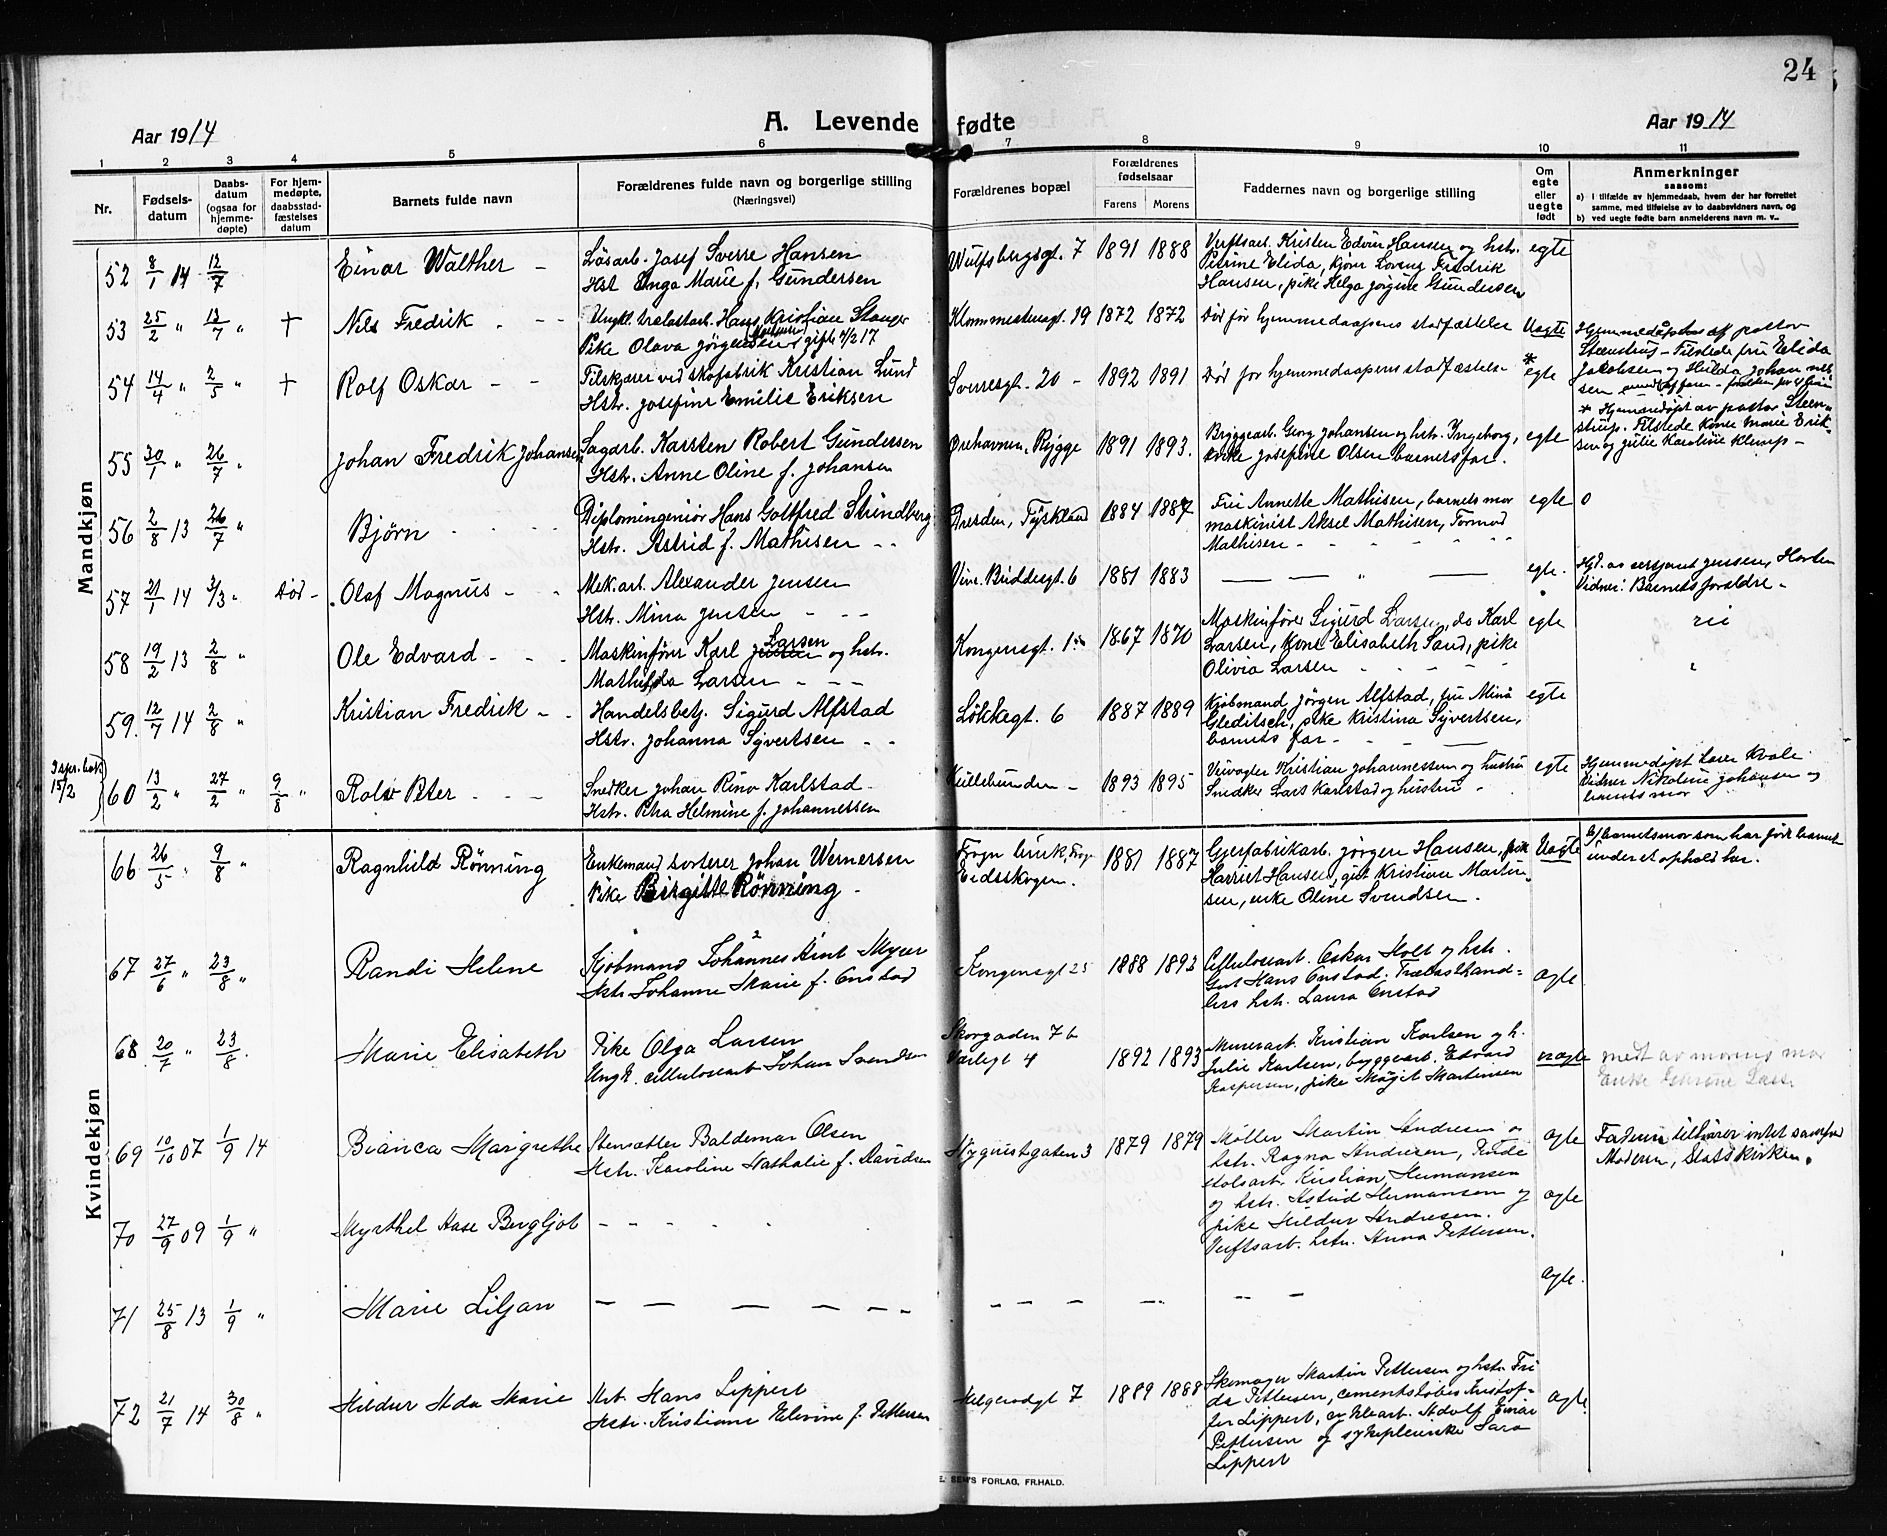 24
Aar 1914
A. Levende fødte
Aar 1914
1 2 3 4 5 6 7 8 9 10 11
Nr.
Fødsels-
datum
Daabs-
datum
(ogsaa for
hjemme-
døpte)
For hjem-
medøpte,
daabsstad-
fæstelses
datum
Barnets fulde navn
Forældrenes fulde navn og borgerlige stilling
(Næringsvei)
Forældrenes bopæl
Forældrenes
fødselsaar
Farens Morens
Faddernes navn og borgerlige stilling
Om
egte
eller
uegte
født
Anmerkninger
saasom:
a) i tilfælde av hjemmedaab, hvem der har forrettet
samme, med tilføielse av to daabsvidners navn, og
b) ved uegte fødte barn anmelderens navn m. v..
Mandkjøn
52 8/1 14 12/7 Einar Walther
Løsarb. Josef Sverre Hansen
Hst Inga Marie f. Gundersen
Wulfsbergsgt. 7 1891 1888
Verftsarb. Kristen Edvin Hansen og hstr.
Petrine Elida, Fredrik
Hansen, pike Helga Jørgine Gundersen
egte
53 25/2 " 13/7 " + Nils Fredrik
Ungkl. trælastarb. Hans Kristian Stanger
Pike Olava Jørgensen gift 4/2 17
1872 1872
Død før hjemmedaapens stadfæstelse
Uegte
Hjemmedøpt af pastor
Steenstrup - Tilstede fru Elida
Jakobsen og Hulda Johan
sen
54 14/4 " 2/5 " + Rolf Oskar
Tilskjærer ved skofabrik Kristian Lund
Hstr. Josefine Emilie Eriksen
Sverresgt. 20 1892 1891
Død før hjemmedaapens stadfæstelse
* egte
* Hjemmedøpt av pastor Steen-
strup. Tilstede kone Marie Erik-
sen og Julie Karoline Klemp -
55 30/1 " 26/7 " Johan Fredrik Johansen
Sagarb. Karsten Robert Gundersen
Hstr. Anne Oline f. Johansen
Rygge 1891 1893.
Bryggearb. Georg Johansen og hstr. Ingeborg,
enke Josefine Olsen barnets far.
egte
56 2/8 13 26/7 " Bjørn
Diplomingeniør Hans Gottfred Strindberg
Hstr. Astrid f. Mathisen
Dresden, Tyskland 1884 1887
Fru Annette Mathisen, barnets mor
maskinist Aksel Mathisen, Tormod
Mathisen
egte 0
57 21/1 14 3/3 " Død Olaf Magnus
Mek.arb. Alexander Jensen
Hstr. Mina Jensen
Vinc. Buddesgt. 6 1881 1883
egte.
Hjd. av sersjant Jensen, Horten
Vidner: Barnets foreldre
58 19/2 13 2/8 " Ole Edvard
Maskinfører Karl Larsen og hstr.
Mathilda Larsen
Kongensgt. 1867 1870
Maskinfører Sigurd Larsen, do Karl
Larsen, kone Elisabeth Sand, pike
Olivia Larsen
egte
59. 12/7 14 2/8 " Kristian Fredrik
Handelsbetj. Sigurd Alfstad
Hstr. Johanna Syvertsen
Løkkegt. 6 1887 1889
Kjøbmand Jørgen Alfstad, fru Mina
Gleditsch, pike Kristina Syvertsen,
barnets far
egte
15/2
60 13/2 " 27/2 " 9/8 " Rolv Peter
Snedker Johan Rino Karlstad
Hstr. Petra Helmine f. Johannessen
1893 1895
Kristian Johannessen og hustru
Snedker Lars Karlstad og hustru
egte
Hjemmedøpt Kvale
Vidner Nikoline Johansen og
barnets mor
Kvindekjøn
66 26/5 " 9/8 " Ragnhild Rønning
Enkemand sorterer Johan Wernersen
Pike Birgitte Rønning
Eidsskogen. 1881 1887
Gjærfabrikarb. Jørgen Hansen, pike
Harriet Hansen, gut Kristian Martin-
sen, enke Oline Svendsen.
Uegte
b/ barnets mor som har født barnet
under et ophold her.
67 27/6 " 23/8 " Randi Helene
Kjøbmand Johannes Myrer
Hstr Johanne Marie f. Onstad
Kongensgt 25 1888 1893
Cellulosearb. Oskar Holt og hstr.
Gut Hans Onstad. Trælasthand-
lers hstr. Laura Onstad
egte
68 20/7 " 23/8 . Marie Elisabeth
Pike Olga Larsen
Ungk. cellulosearb Johan Svendsen
Skovgaden 7b
Varlegt 4
1892 1893
Murerarb. Kristian Karlsen og h.
Julie Karlsen, byggearb. Edvard
Kaspersen, pike Margit Martinsen
uegte
medt av morens mor
Enke
69 10/10 07 1/9 14 Bianca Margrethe
Stensætter Baldemar Olsen
Hstr. Karoline Nathalie f. Davidsen
Nyquistgaten 3 1879 1879
Møller Martin Andresen og
hstr. Ragna Andresen,
Kristian Hermansen
og hstr. Astrid Hermansen og
pike Hildur Andresen.
Verftsarb. hstr. Anna Pettersen.
egte
Faderen tilhører intet samfund
Moderen, Statskirken.
70 27/9 09 1/9 " Myrthel Aase Bergljot
egte
71 25/8 13 1/9 " Marie Liljan
egte.
72 21/7 14 30/8 " Hildur Alda Marie
Arb. Hans Lippert
Hstr. Kristiane Elevine f. Pettersen
Helgerødgt 7 1889 1888
Skomager Martin Pettersen og hstr. Fri-
da Pettersen, Kristof-
fer Lippert, Adolf Einar
Pettersen og sykepleierske Sara
Lippert
egte
SEM'S FORLAG, FR.HALD.